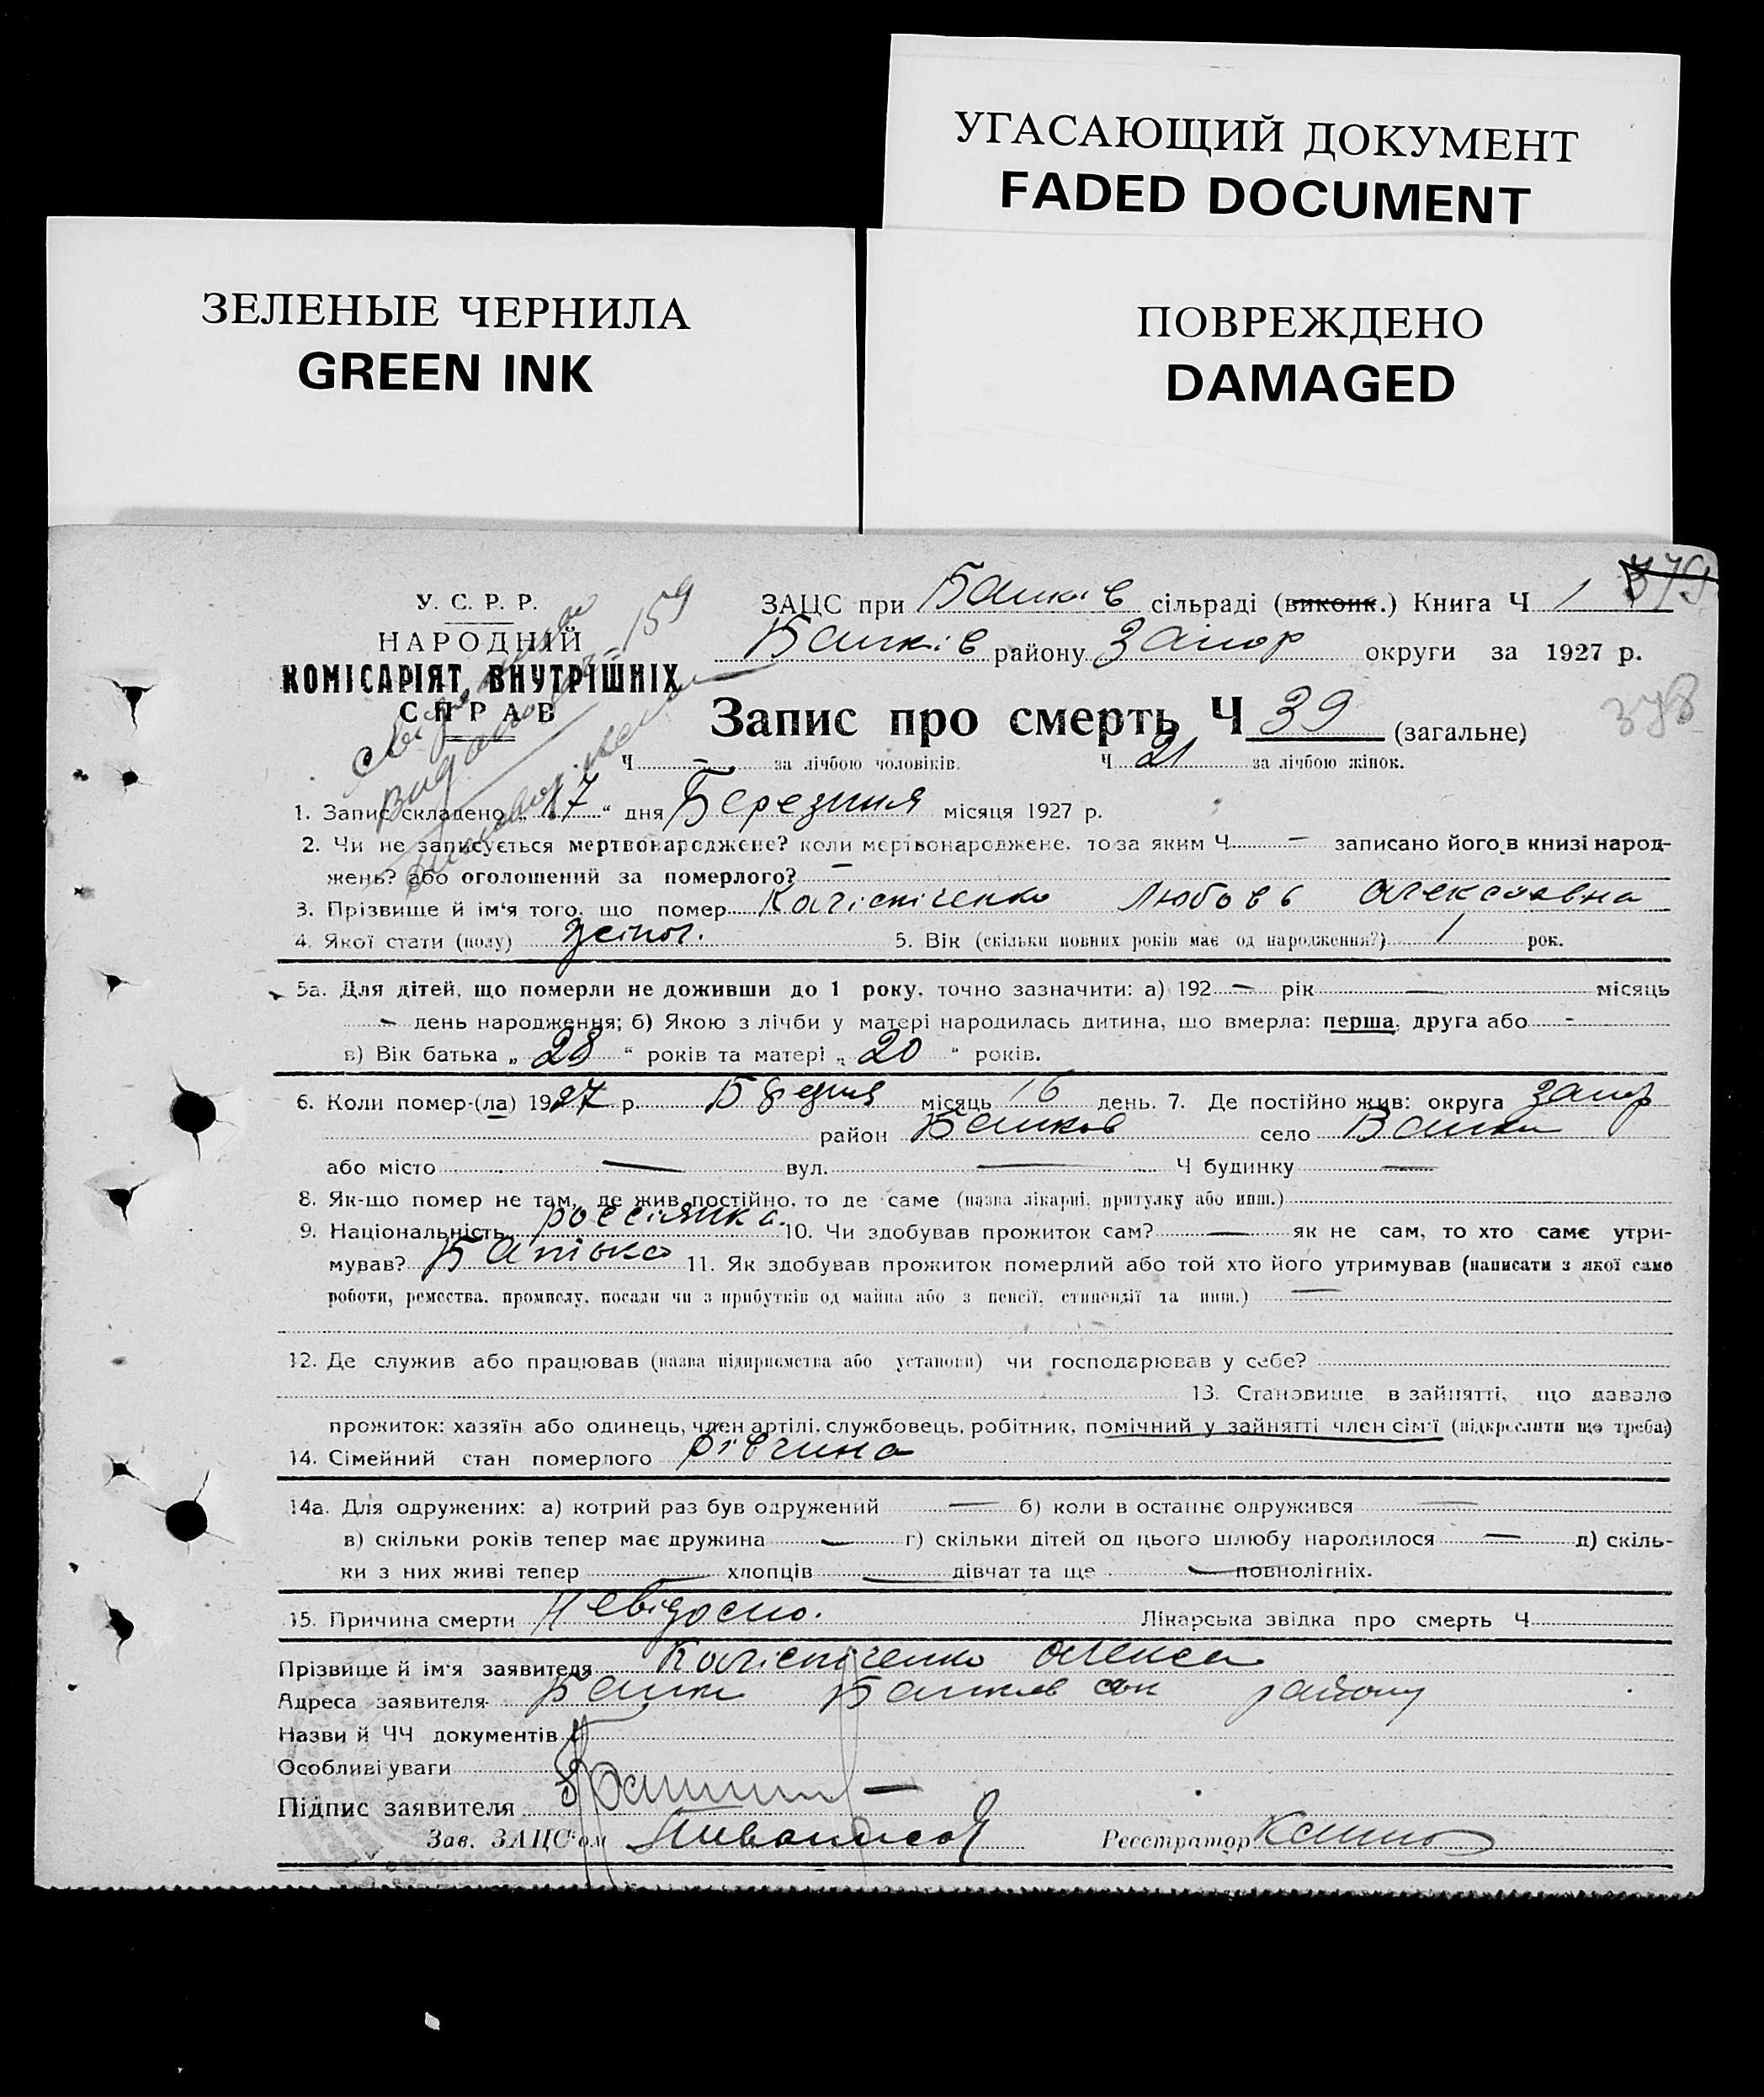 УГАСАЮЩИЙ ДОКУМЕНТ
FADED DOCUMENT
ЗЕЛЕНЫЕ ЧЕРНИЛА
GREEN INK
ПОВРЕЖДЕНО
DAMAGED
379
378
У. С. Р. Р.
НАРОДНІЙ
КОМІСАРІЯТ ВНУТРІШНІХ
СПРАВ
159
ЗАЦС при сільраді (виконк.) Книга Ч 1
району Запор округи за 1927 р.
Запис про смерть Ч 39 (загальне)
Ч — за лічбою чоловіків. Ч 21 за лічбою жінок.
1. Запис складено „ 17 “ дня Березния місяця 1927 р.
2. Чи не записується мертвонароджене? коли мертвонароджене, то за яким Ч — записано його в книзі народ-
жень? або оголошений за померлого? —
3. Прізвище й ім'я того, що помер Любовь Олексаевна
4. Якої стати (полу) жіноч. 5. Вік (скільки повних років має од народження?) 1 рок.
5а. Для дітей, що померли не доживши до 1 року, точно зазначити: а) 192 — рік — місяць
— день народження; б) Якою з лічби у матері народилась дитина, що вмерла: перша, друга або -
в) Вік батька „ 28 “ років та матері „ 20 “ років.
6. Коли помер-(ла) 1927 р. місяць 16 день. 7. Де постійно жив: округа Запор
район село
або місто — вул. — Ч будинку —
8. Як-що помер не там, де жив постійно, то де саме (назва лікарні, притулку або инш.)
9. Національність россіянка. 10. Чи здобував прожиток сам? — як не сам, то хто саме утри-
мував? Батько 11. Як здобував прожиток померлий або той хто його утримував (написати з якої саме
роботи, ремества, промислу, посади чи з прибутків од майна або з пенсії, стипендії та инш.) —
12. Де служив або працював (назва підприємства або установи) чи господарював у себе?
13. Становище в зайнятті, що давало
прожиток: хазяїн або одинець, член артілі, службовець, робітник, помічний у зайнятті член сім'ї (підкреслити що треба)
14. Сімейний стан померлого дівчина
14а. Для одружених: а) котрий раз був одружений — б) коли в останнє одружився —
в) скільки років тепер має дружина — г) скільки дітей од цього шлюбу народилося — д) скіль-
ки з них живі тепер — хлопців — дівчат та ще — повнолітніх.
15. Причина смерти Невідомо. Лікарська звідка про смерть Ч
Прізвище й ім'я заявителя Олекса
Адреса заявителя району
Назви й ЧЧ документів
Особливі уваги
Підпис заявителя
Зав. ЗАЦС'ом Реєстратор